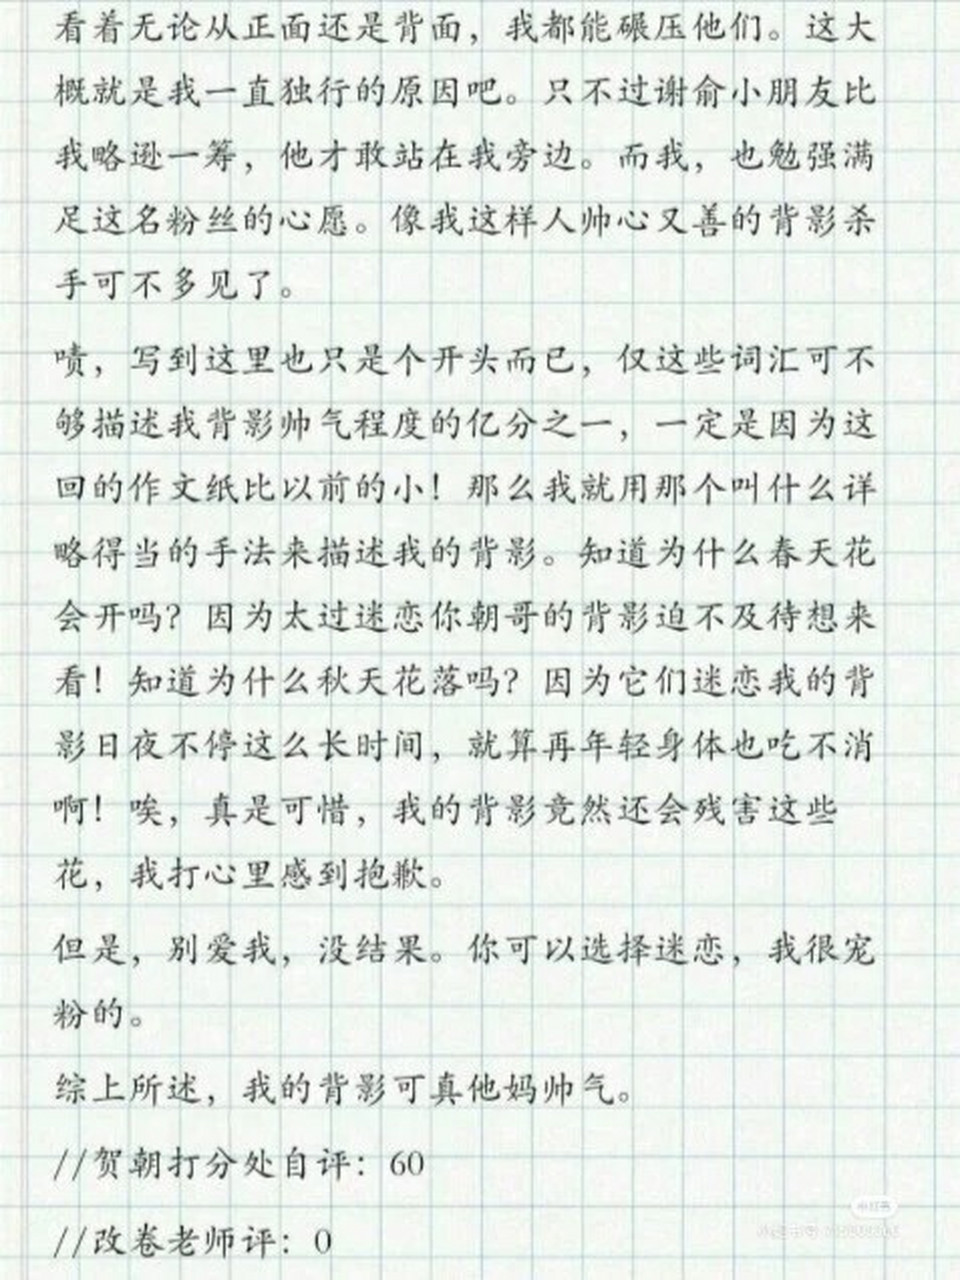 看着无论从正面还是背面，我都能碾压他们。这大
概就是我一直独行的原因吧。只不过谢俞小朋友比
我略逊一筹，他才敢站在我旁边。而我，也勉强满
足这名粉丝的心愿。像我这样人帅心又善的背影杀
手可不多见了。
啧，写到这里也只是个开头而已，仅这些词汇可不
够描述我背影帅气程度的亿分之一，一定是因为这
回的作文纸比以前的小！那么我就用那个叫什么详
略得当的手法来描述我的背影。知道为什么春天花
会开吗？因为太过迷恋你朝哥的背影迫不及待想来
看！知道为什么秋天花落吗？因为它们迷恋我的背
影日夜不停这么长时间，就算再年轻身体也吃不消
啊！唉，真是可惜，我的背影竟然还会残害这些
花，我打心里感到抱歉。
但是，别爱我，没结果。你可以选择迷恋，我很宠
粉的。
综上所述，我的背影可真他妈帅气。
//贺朝打分处自评：60
//改卷老师评：0
小红书